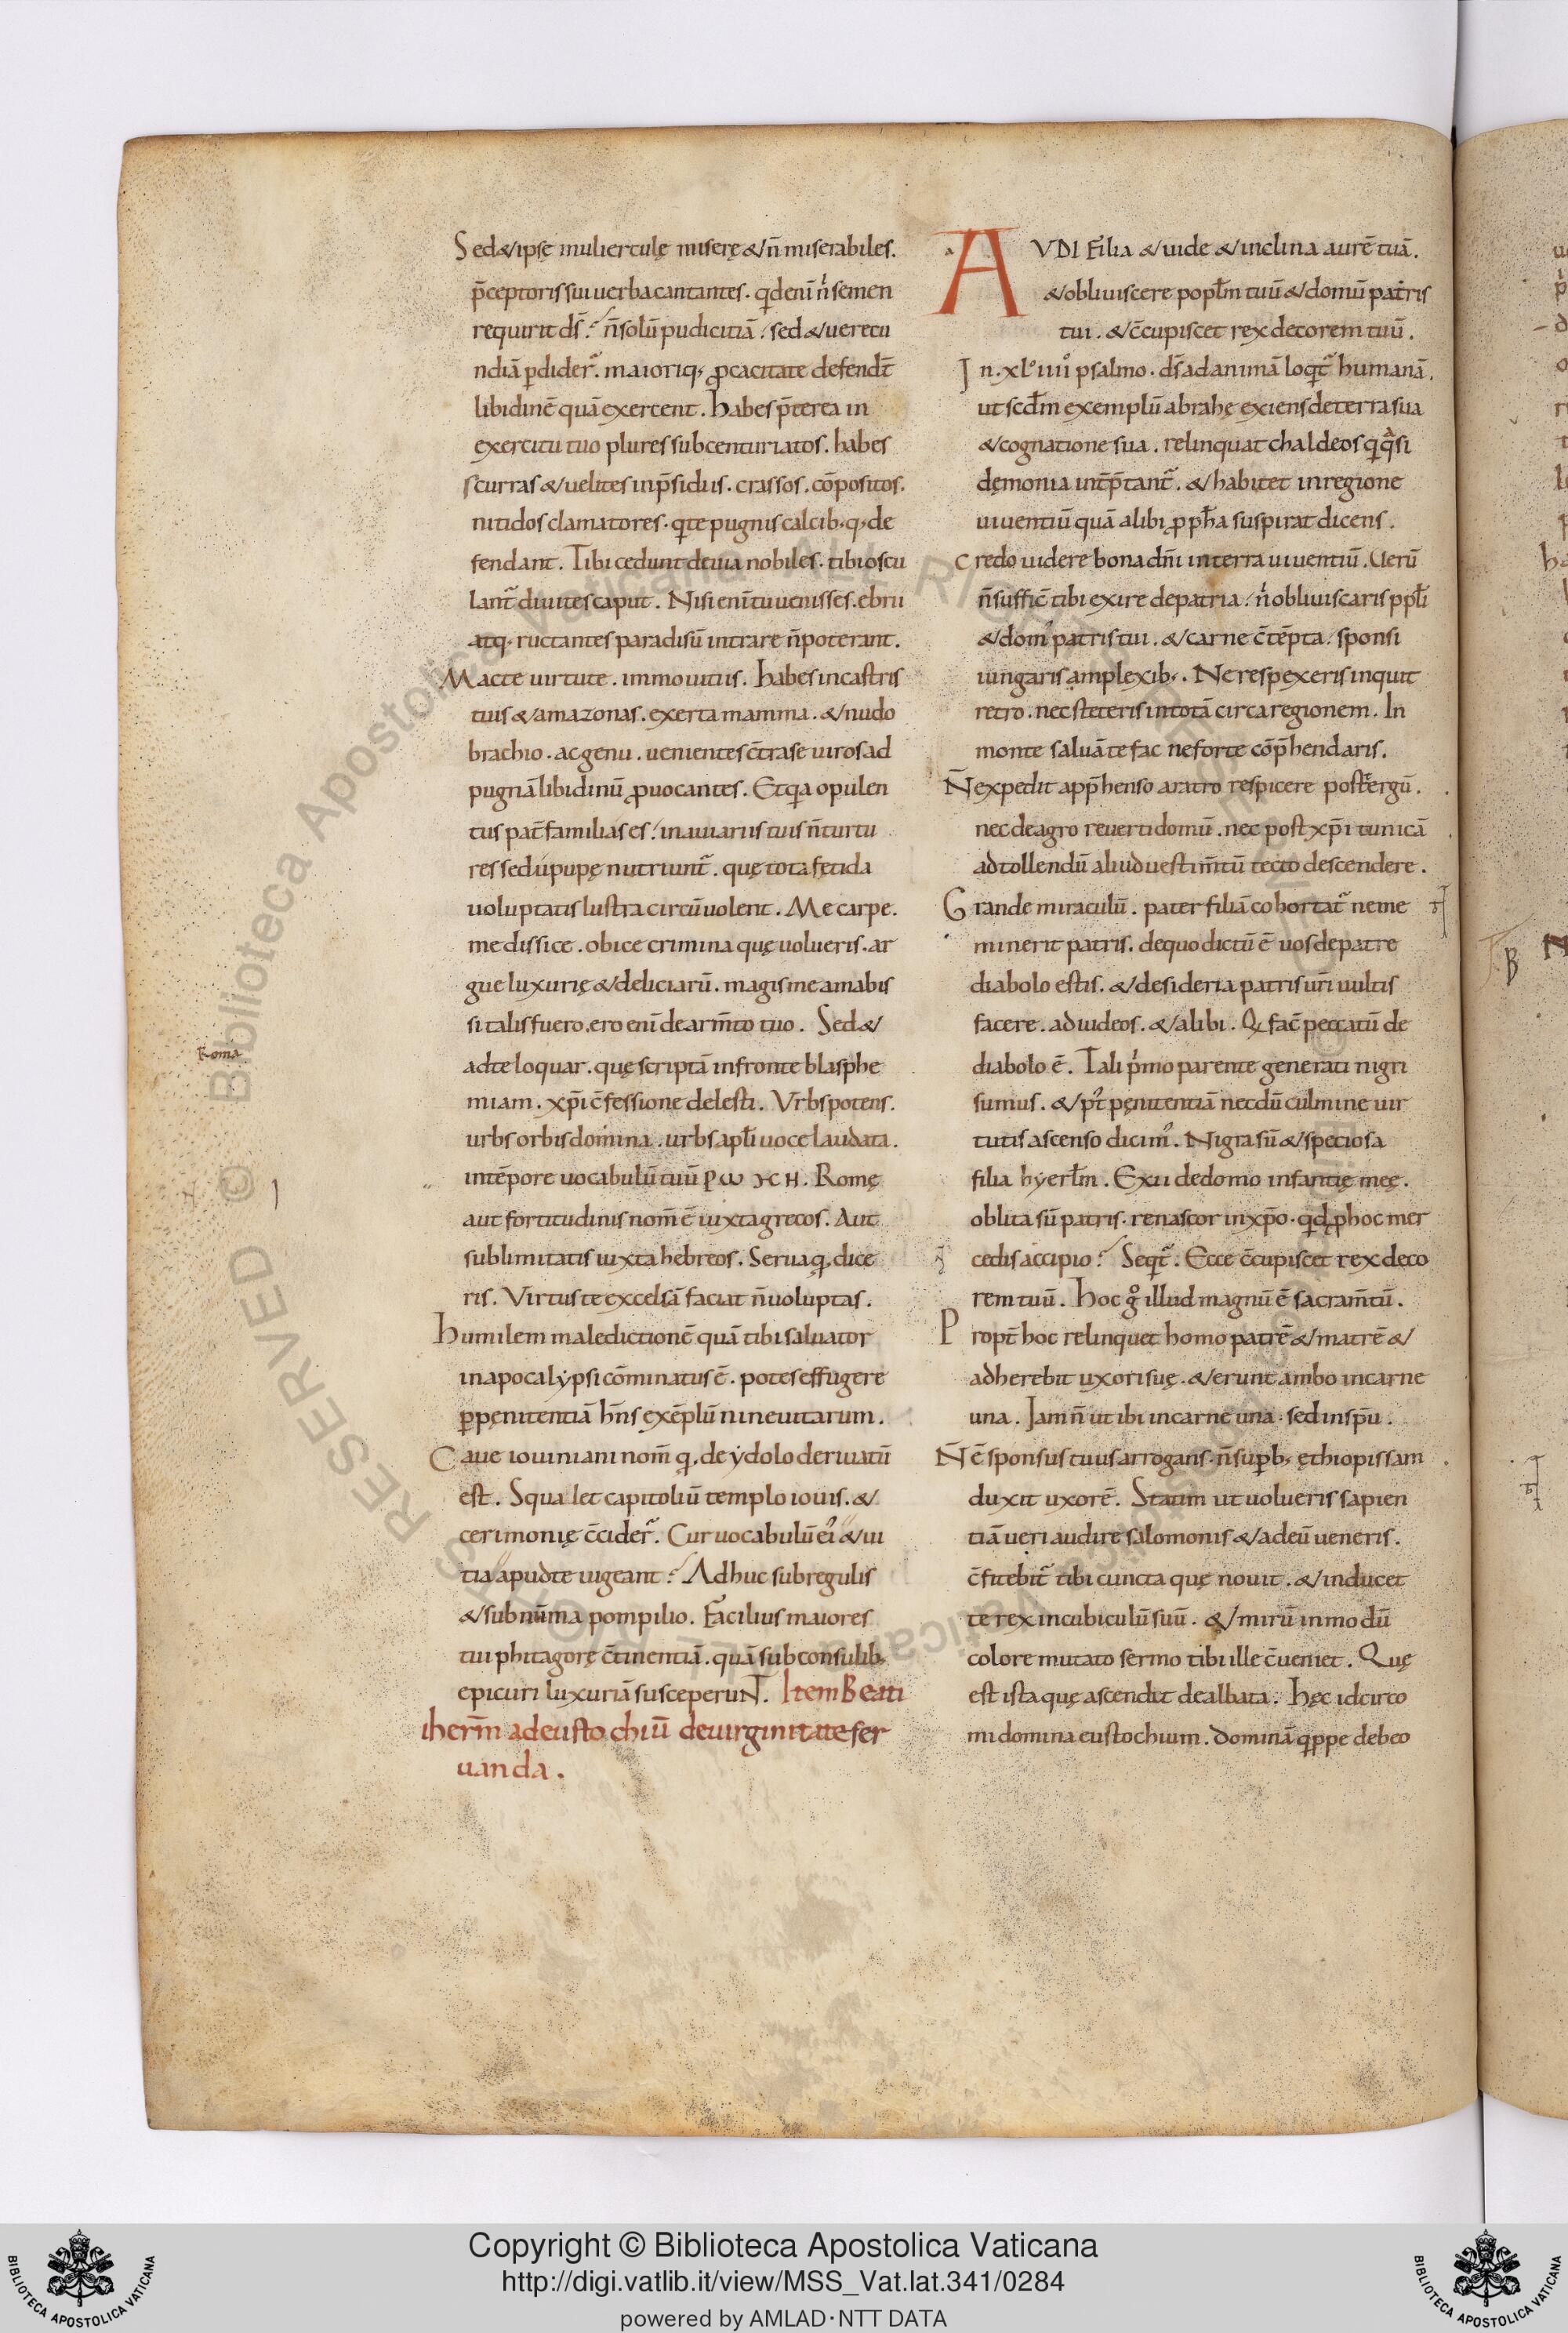 Sed & ipsę muliercule miserę & n̄ miserabiles.
p̄ceptoris sui uerba cantantes. qd enī ń semen
requirit ds̄? n̄ solū pudicitiā, sed & uerecu
ndiā ꝑdider̄. maioriq; ꝓcacitate defendt̄
libidinē quā exercent. Habes p̄terea in
exercitu tuo plures subcenturiatos. habes
scurras & uelites in p̄sidiis. crassos. cōpositos.
nitidos clamatores. qui te pugnis calcib; q; de
fendant. Tibi cedunt de uia nobiles. tibi oscu
lant̄ diuites caput. Nisi enī tu uenisses. ebrii
atq; ructantes paradisū intrare n̄ poterant.
Macte uirtute. immo uitiis. Habes in castris
tuis & amazonas. exerta mamma. & nudo
brachio. ac genu. uenientes c̄tra se uiros ad
pugnā libidinū ꝓuocantes. Et qa opulen
tus pat̄familias es, in auiariis tuis n̄ turtu
res sed upupę nutriunt̄. quę tota fętida
uoluptatis lustra circūuolent. Me carpe.
me dissice. obice crimina quę uolueris. ar
gue luxurię & deliciarū. magis me amabis
si talis fuero. ero enī de arm̄to tuo. Sed &
Roma
ad te loquar. quę scriptā in fronte blasphe
miam. xp̄i c̄fessione delesti. Vrbs potens.
urbs orbis domina. urbs apl̄i uoce laudata.
intēpore uocabulū tuū ΡΩΜΗ. Romę
aut fortitudinis nom̄ ē iuxta grecos. Aut
sublimitatis iuxta hebreos. Serua q, dice
ris. Virtus te excelsā faciat n̄ uoluptas.
Humilem maledictionē quā tibi saluator
in apocalypsi cōminatus ē. potes effugere
ꝑ pęnitentiā hn̄s exēplū nineuitarum.
Caue iouiniani nom̄ q, de ydolo deriuatū
est. Squalet capitoliū templo iouis. &
cerimonię c̄cider̄. Cur uocabulū ei' & ui
tia apud te uigeant? Adhuc sub regulis
& sub nūma pompilio. Facilius maiores
tui phitagorę c̄tinentiā. quā sub consulib;
epicuri luxuriā susceperuNT. Item Beati
iherm̄ ad eustochiū de uirginitate ser
uanda.
AVDI Filia & uide & inclina aurē tuā.
& obliuiscere popl̄m tuū & domū patris
tui. & c̄cupiscet rex decorem tuū.
In. xl°iiii° psalmo. ds̄ ad animā loqt̄ humanā.
ut scd̄m exemplū abrahę exiens de terra sua
& cognatione sua. relinquat chaldeos q qasi
dęmonia int̄p̄tant̄. & habitet in regione
uiuentiū quā alibi ꝓph̄a suspirat dicens.
Credo uidere bona dn̄i in terra uiuentiū. Verū
n̄ suffic̄ tibi exire de patria, ń obliuiscaris ppl̄i
& dom' patris tui. & carne c̄tēpta, sponsi
iungaris amplexib;. Ne respexeris inquit
retro. nec steteris in totā circa regionem. In
monte saluā te fac ne forte cōp̄hendaris.
N̄ expedit app̄henso aratro respicere post tergū.
nec de agro reuerti domū. nec post xp̄i tunicā
ad tollendū aliud uestim̄tū tecto descendere.
Grande miraculū. pater filiā cohortat̄ ne me
minerit patris. de quo dictū ē uos de patre
diabolo estis. & desideria patris ur̄i uultis
facere. ad iudeos. & alibi. Q, fac̄ peccatū de
diabolo ē. Tali p'mo parente generati nigri
sumus. & p't pęnitentiā necdū culmine uir
tutis ascenso dicim'. Nigra sū & speciosa
filia hyerl̄m. Exii de domo infantię meę.
oblita sū patris. renascor in xp̄o. qd ꝓ hoc mer
cedis accipio? Seqt̄. Ecce c̄cupiscet rex deco
rem tuū. Hoc g° illud magnū ē sacram̄tū.
Propt̄ hoc relinquet homo patrē & matrē &
adherebit uxori suę. & erunt ambo in carne
una. Jam n̄ ut ibi in carne una. sed in sp̄u.
N̄ ē sponsus tuus arrogans. n̄ suꝑb; ęthiopissam
duxit uxorē. Statim ut uolueris sapien
tiā ueri audire salomonis & ad eū ueneris.
c̄fitebit̄ tibi cuncta quę nouit. & inducet
te rex in cubiculū suū. & mirū in modū
colore mutato sermo tibi ille c̄ueniet. Quę
est ista quę ascendit dealbata. Hęc idcirco
mi domina eustochium. dominā qppe debeo
Copyright © Biblioteca Apostolica Vaticana
http://digi.vatlib.it/view/MSS_Vat.lat.341/0284
powered by AMLAD·NTT DATA
BIBLIOTECA APOSTOLICA VATICANA
BIBLIOTECA APOSTOLICA VATICANA